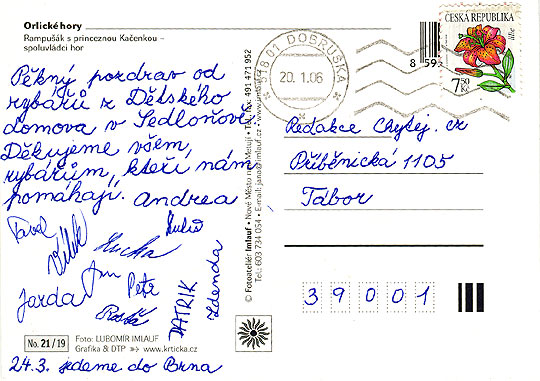 Orlické hory
Rampušák s princeznou Kačenkou –
spoluvládci hor
Pěkný pozdrav od
rybářů z Dětského
domova v Sedloňově.
Děkujeme všem,
rybářům, kteří nám
pomáhají. Andrea
Pavel
Jarda
Petr
PATRIK
Zdenda
No. 21/19
Foto: LUBOMÍR IMLAUF
Grafika & DTP >> www.krticka.cz
24.3. jedeme do Brna
© Fotoateliér Imlauf • Nové Město nad Metují • Tel./Fax: 491 471 952
Tel.: 603 734 054 • E-mail: jana@imlauf.cz • www.imlauf.cz
518 01 DOBRUŠKA
20.1.06
8 59
ČESKÁ REPUBLIKA
lilie
7,50
Kč
Redakce Chytej.cz
Příběnická 1105
Tábor
39001